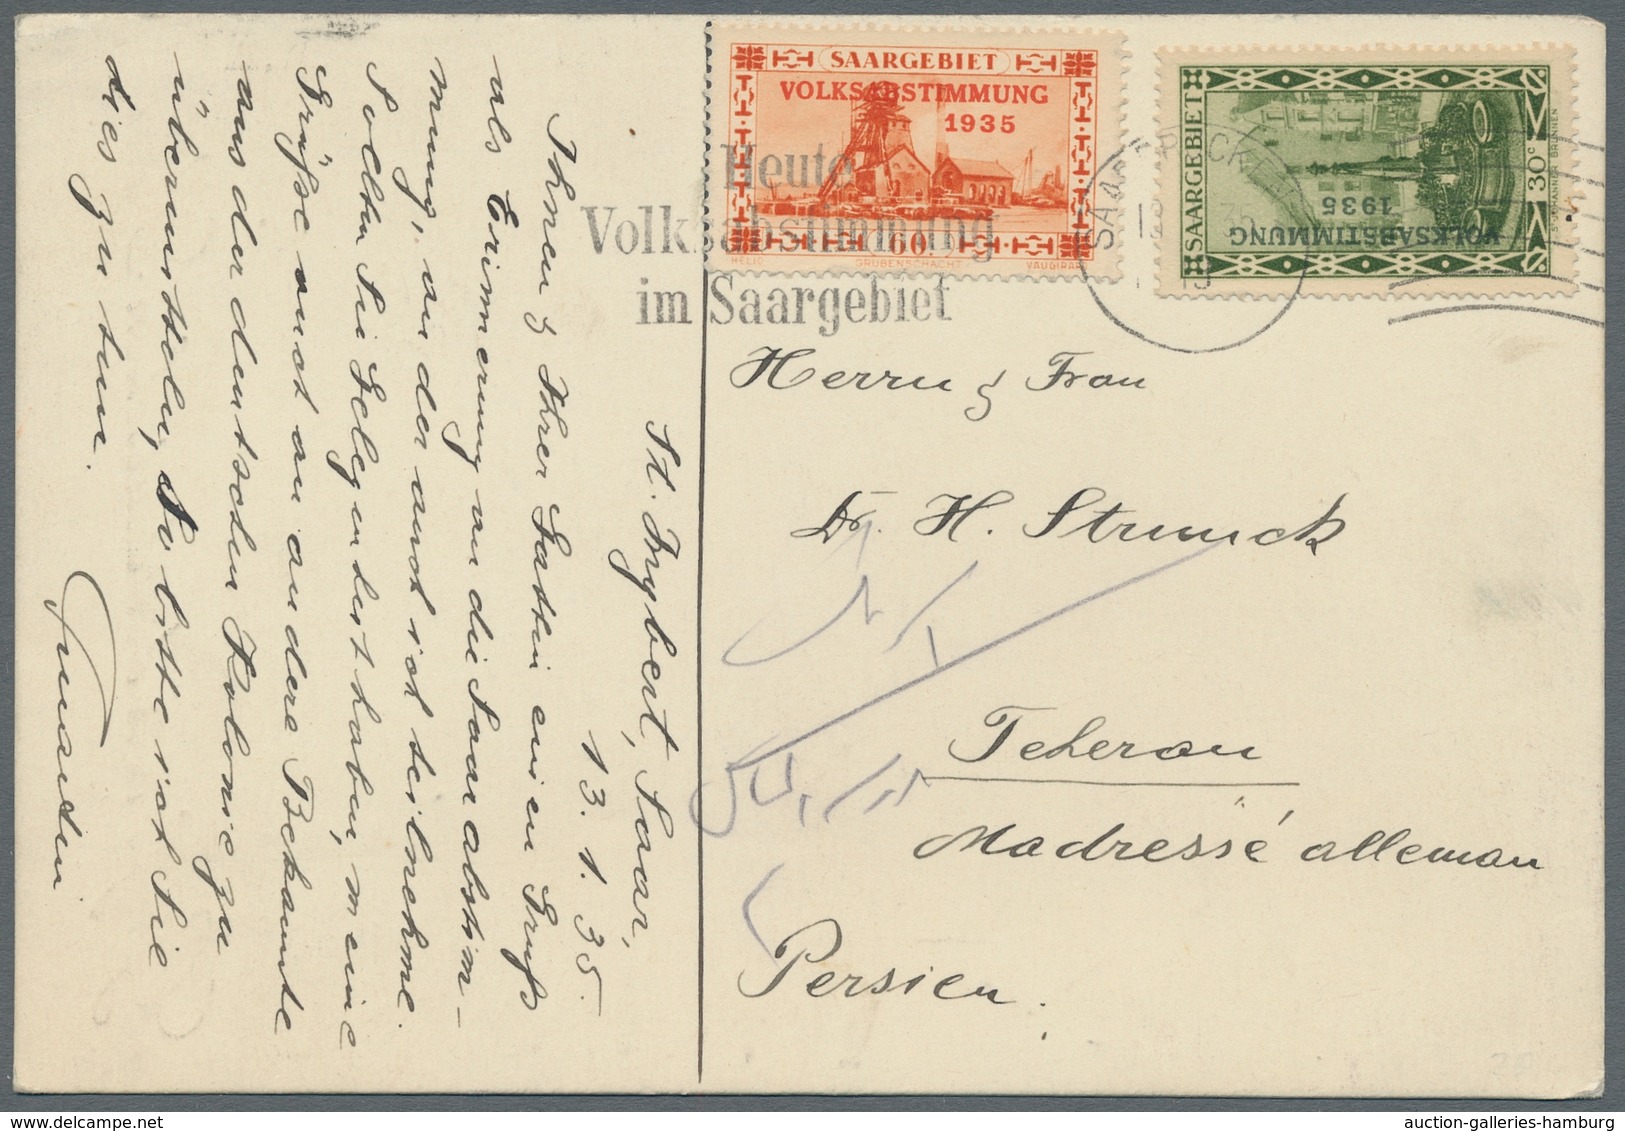 St. Ingbert, Saar,
13. 1. 35.
Ihnen & Ihrer Gattin einen Gruß
als Erinnerung an die Saarabstim-
mung, an der auch ich teilnehme.
Sollten Sie Gelegenheit haben, meine
Grüße auch an andere Bekannte
aus der deutschen Kolonie zu
übermitteln, so bitte ich Sie
dies zu tun.
SAARGEBIET
VOLKSABSTIMMUNG
1935
60
HELIO GRUBENSCHACHT VAUGIRARD
SAARGEBIET
VOLKSABSTIMMUNG
1935
30c
Heute
Volksabstimmung
im Saargebiet
SAARBRÜCKEN
Herrn & Frau
Dr. H. Strunck
Teheran
Madressé alleman
Persien.
auction-galleries-hamburg